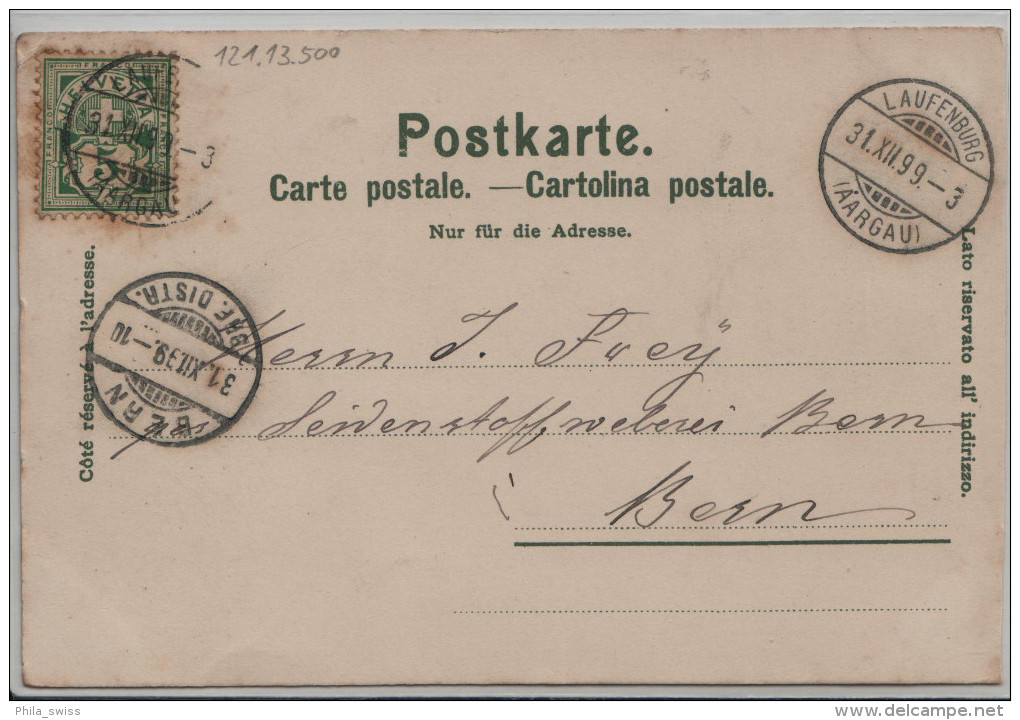 121.13.500
FRANCO
HELVETIA
FRANCO
5
31.XII.99.-3
LAUFENBURG
31.XII.99.-3
(AARGAU)
Postkarte.
Carte postale. — Cartolina postale.
Nur für die Adresse.
Côté réservé à l'adresse.
Lato riservato all' indirizzo.
BRF. DISTR.
31.XII.99.-10
BERN
Herrn J. Frey
Seidenstoffweberei Bern
Bern
Phila_swiss
delcampe.net